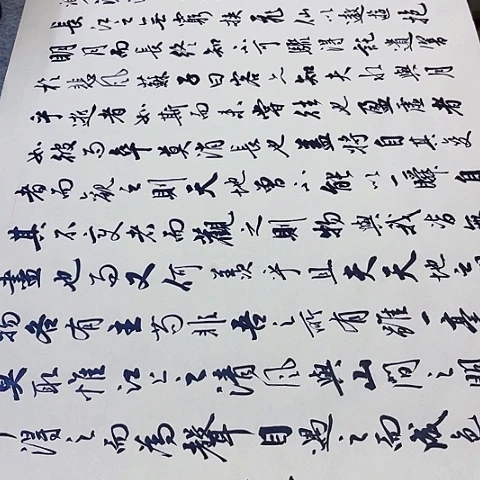 長江之無窮挾飛仙以遨遊抱
明月而長終知不可驟得託遺響
於悲風蘇子曰客亦知夫水與月
乎逝者如斯而未嘗往也盈虛者
如彼而卒莫消長也蓋將自其變
者而觀之則天地曾不能以一瞬自
其不變者而觀之則物與我皆無
盡也而又何羨乎且夫天地之
物各有主苟非吾之所有雖一毫
莫取惟江上之清風與山間之明
得之而為聲目遇之而成色